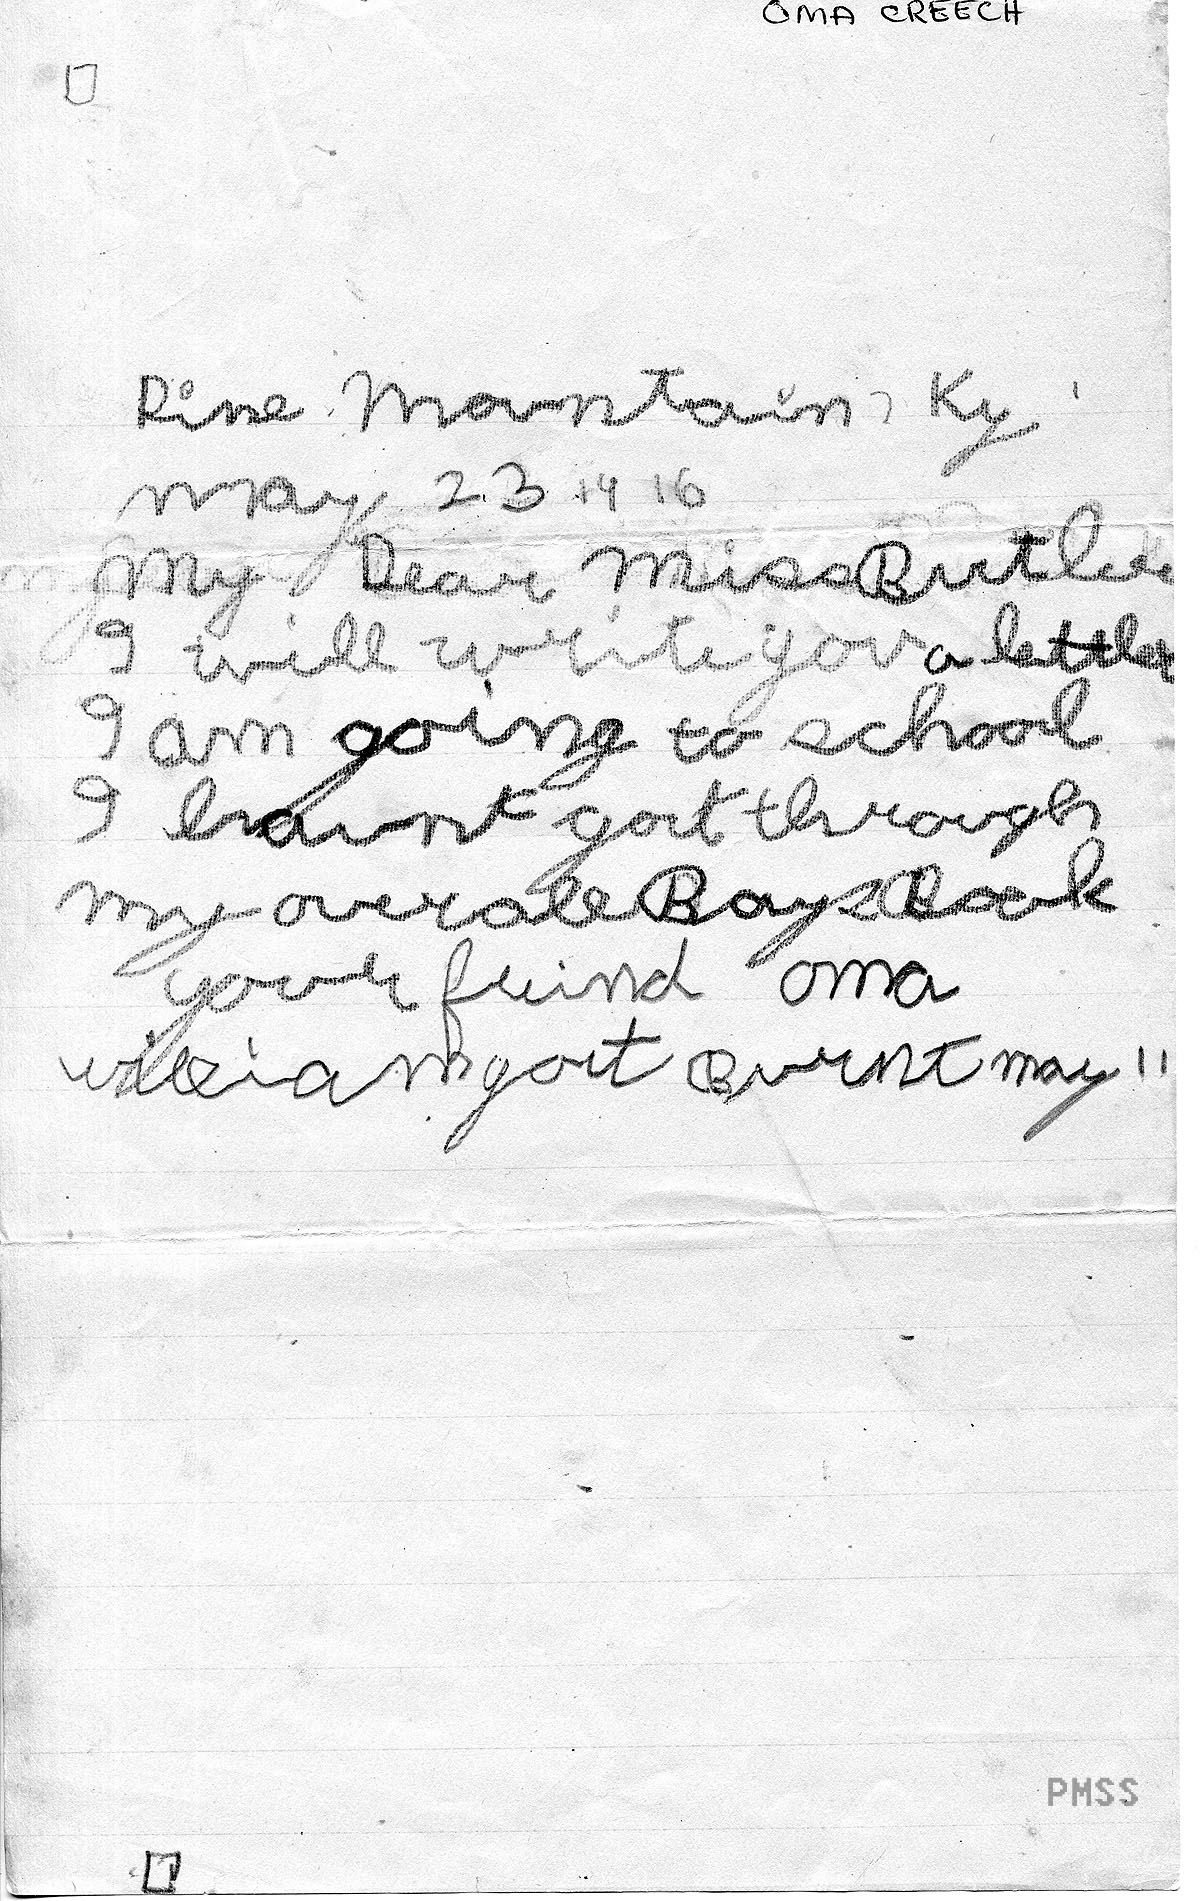 OMA CREECH
Pine Mountain, Ky
may 23 1916
My Dear Miss Butler
I will write you a letter
I am going to school
I havnt got through
my overall Boys Book
your freind oma
william got Burnt may 11
PMSS